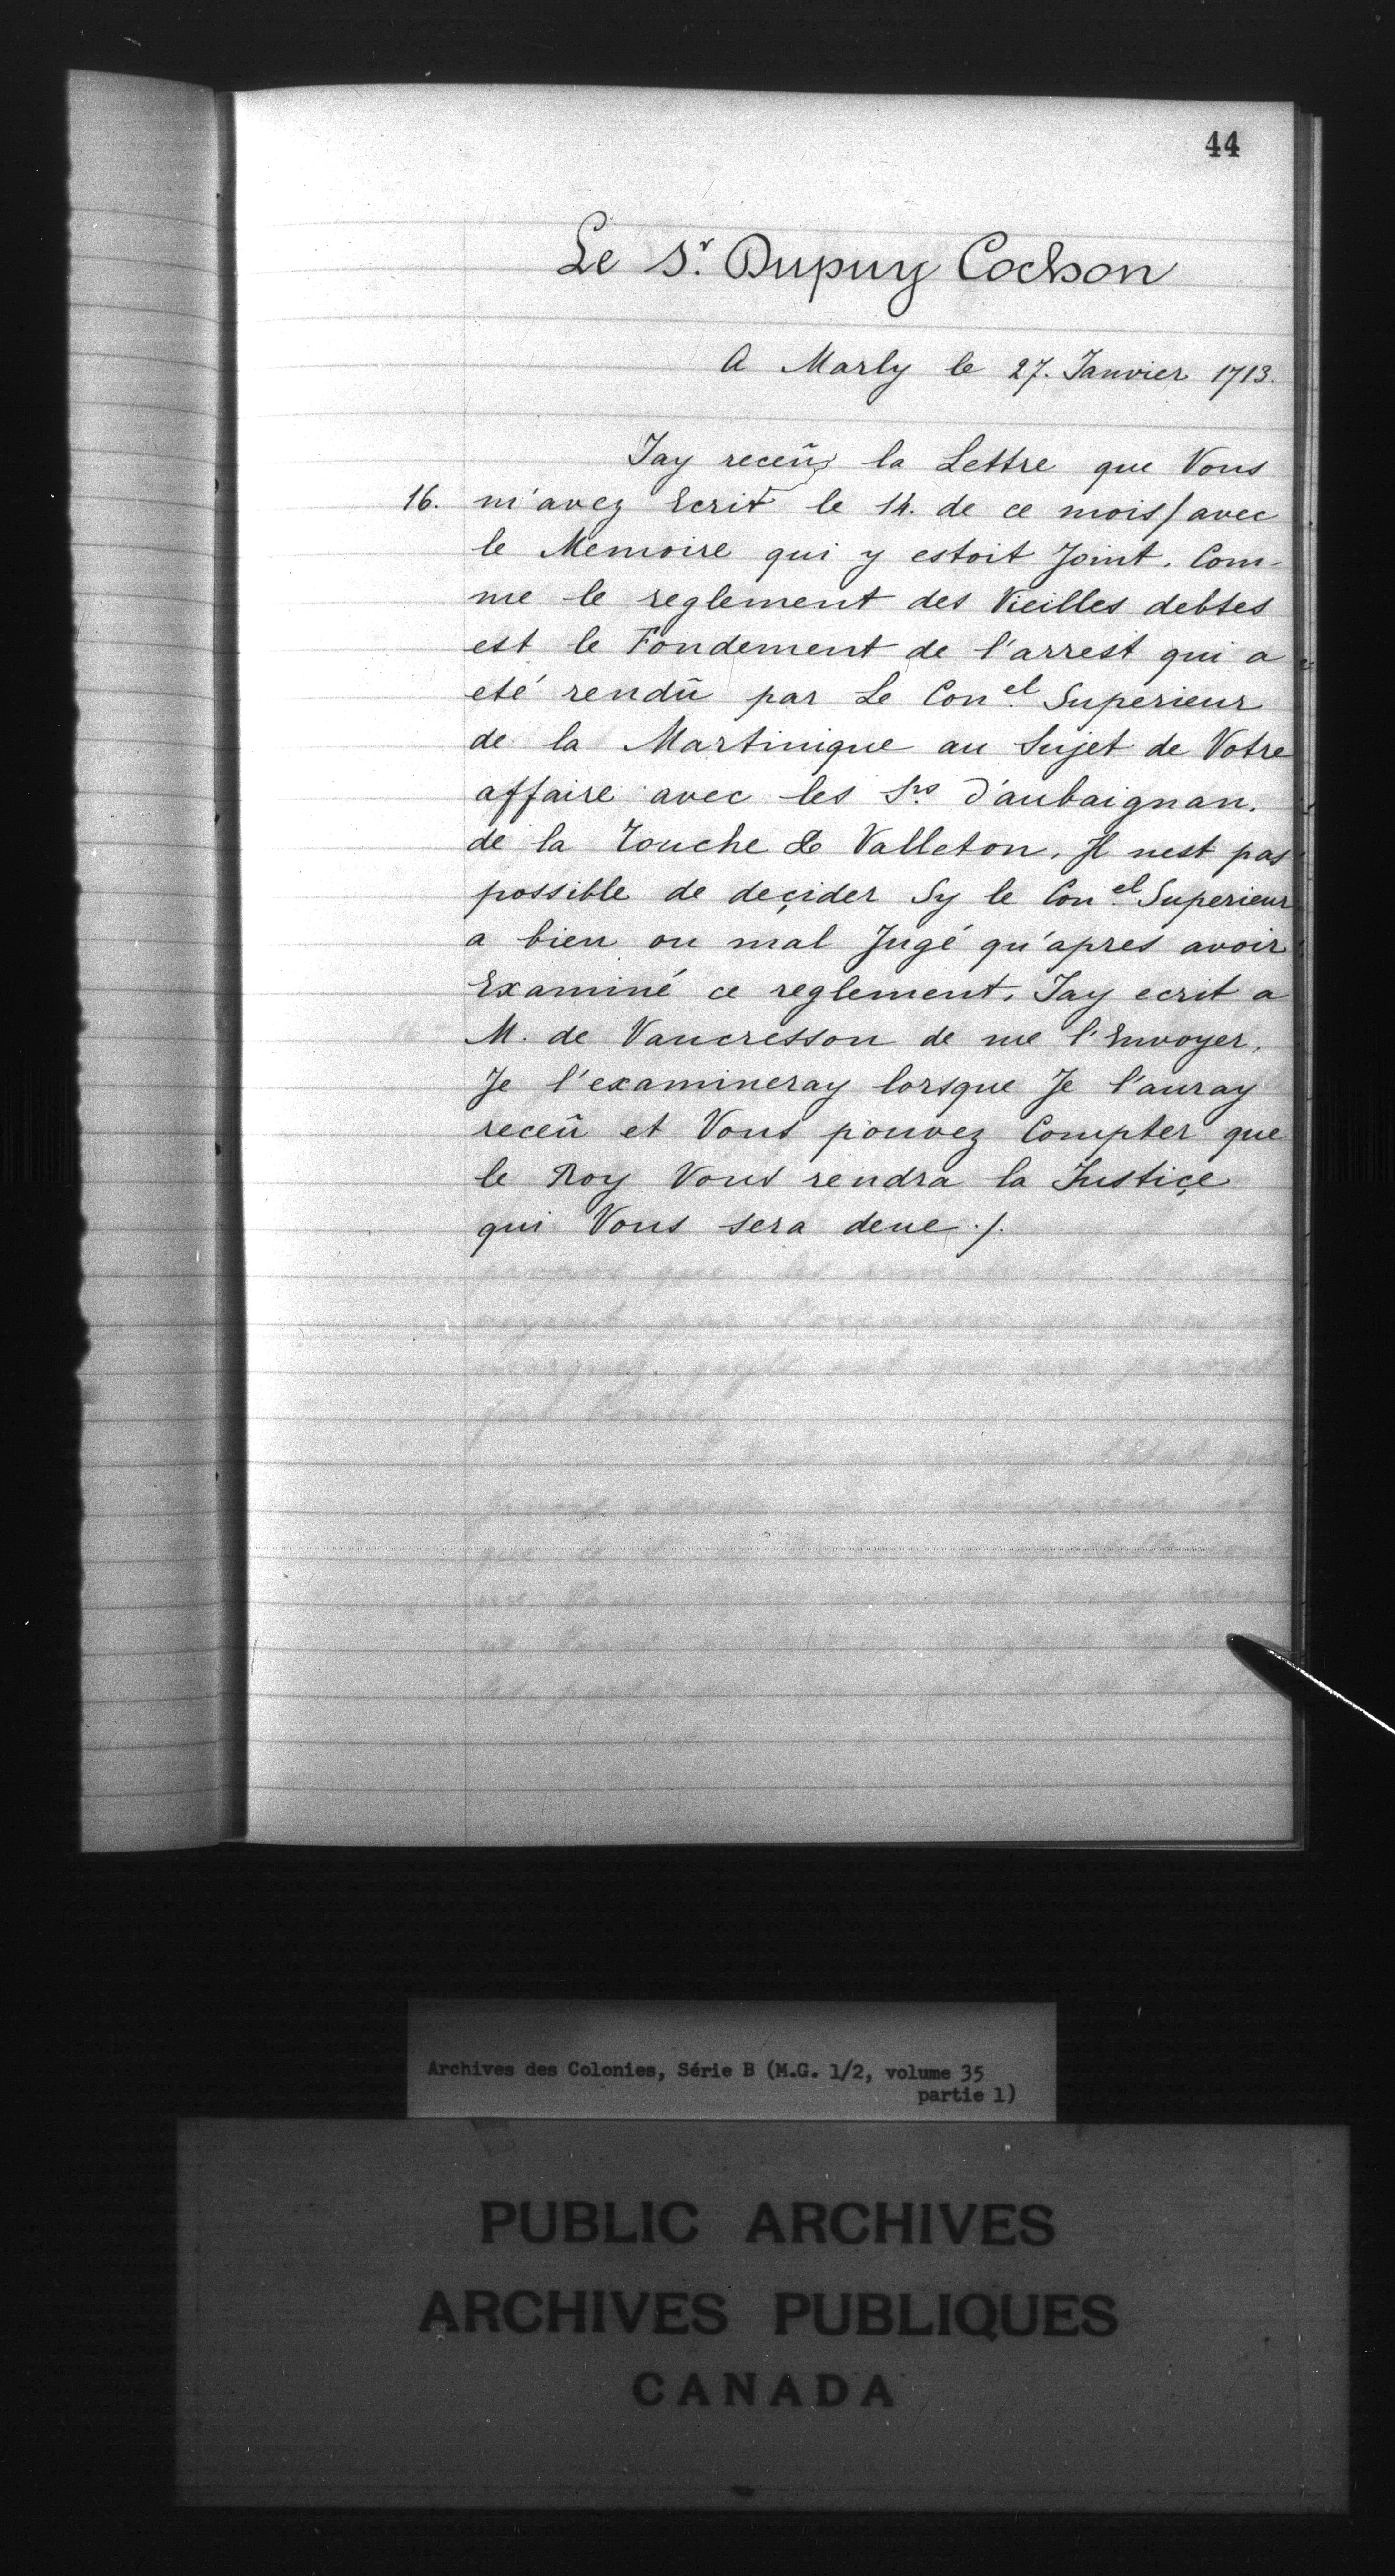 44
Le Sr. Dupuy Cochon
A Marly le 27. Janvier 1713.
Jay receu la Lettre que Vous
16. m'avez Ecrit le 14. de ce mois/avec
le Memoire qui y estoit Joint. Com-
me le reglement des Vieilles debtes
est le Fondement de l'arrest qui a
eté rendû par Le Con.el Superieur
de la Martinique au Sujet de Votre
affaire avec les Srs. d'aubaignan.
de la Touche & Valleton. Il nest pas
possible de deçider Sy le Con.el Superieur
a bien ou mal Jugé qu'aprés avoir
Examiné ce reglement. Jay ecrit a
M. de Vaucresson de me l'Envoyer.
Je l'examineray lorsque Je l'auray
receû et Vous pouvez Compter que
le Roy Vous rendra la Justiçe
qui Vous sera deue ./.
Archives des Colonies, Série B (M.G. 1/2, volume 35
partie 1)
PUBLIC ARCHIVES
ARCHIVES PUBLIQUES
CANADA